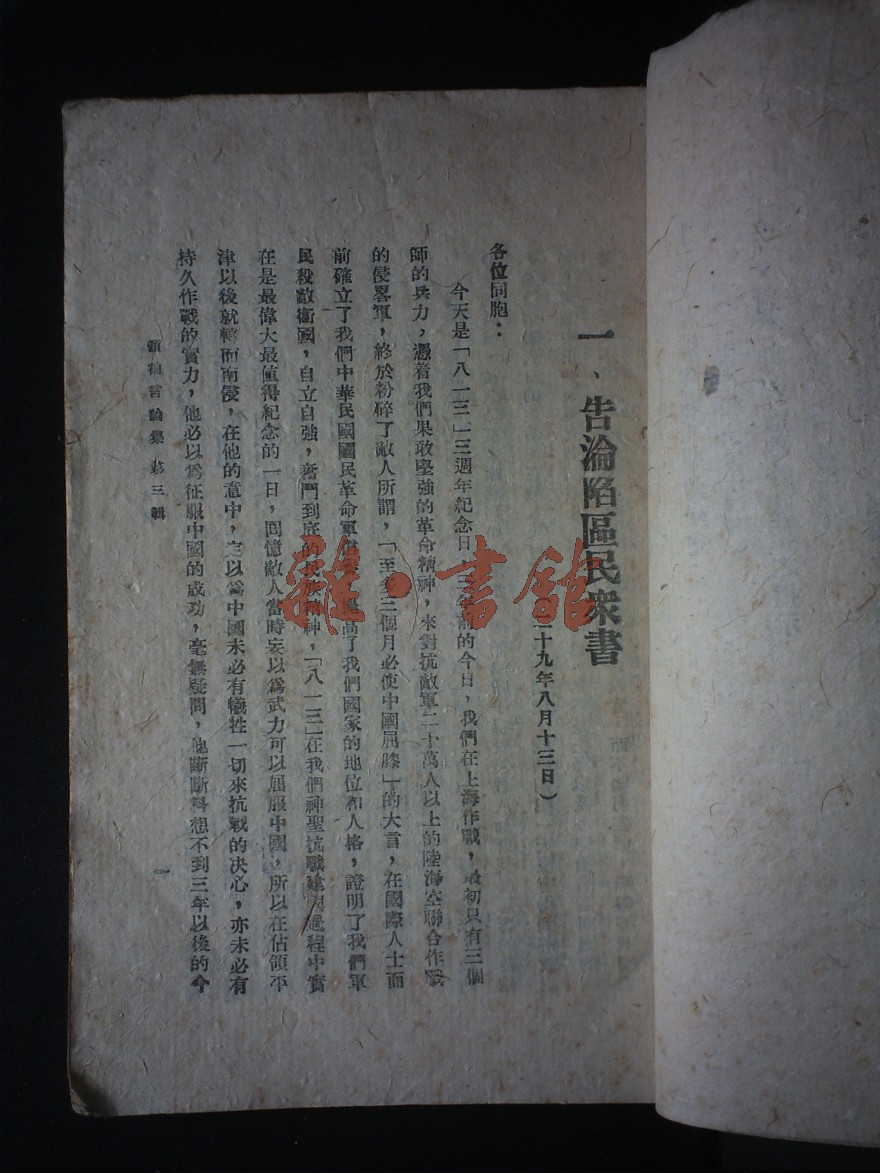 一、告淪陷區民衆書
十九年八月十三日）
各位同胞：
今天是「八一三」三週年紀念日，三年前的今日，我們在上海作戰，最初只有三個
師的兵力，憑着我們果敢堅強的革命精神，來對抗敵軍二十萬人以上的陸海空聯合作戰
的侵畧軍，終於粉碎了敵人所謂，「至多三個月必使中國屈膝」的大言，在國際人士面
前確立了我們中華民國國民革命軍高了我們國家的地位和人格，證明了我們軍
民殺敵衞國，自立自強，奮鬥到底的民族精神，「八一三」在我們神聖抗戰建國過程中實
在是最偉大最值得紀念的一日，回憶敵人當時妄以爲武力可以屈服中國，所以在佔領平
津以後就轉而南侵，在他的意中，定以爲中國未必有犧牲一切來抗戰的決心，亦未必有
持久作戰的實力，他必以爲征服中國的成功，毫無疑問，他斷斷料想不到三年以後的今
言論集 第三輯
一
雜·書館